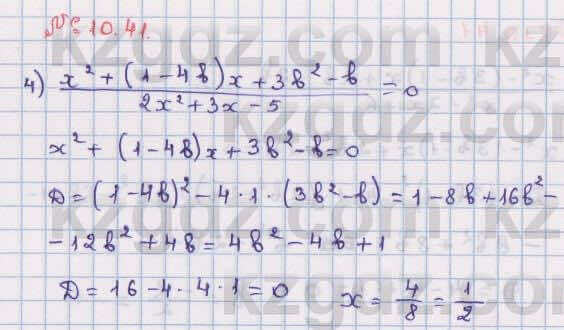 № 10.41.
4) (x² + (1 - 4b)x + 3b² - b) / (2x² + 3x - 5) = 0
x² + (1 - 4b)x + 3b² - b = 0
D = (1 - 4b)² - 4 · 1 · (3b² - b) = 1 - 8b + 16b² -
- 12b² + 4b = 4b² - 4b + 1
D = 16 - 4 · 4 · 1 = 0    x = 4/8 = 1/2
kzgdz.com